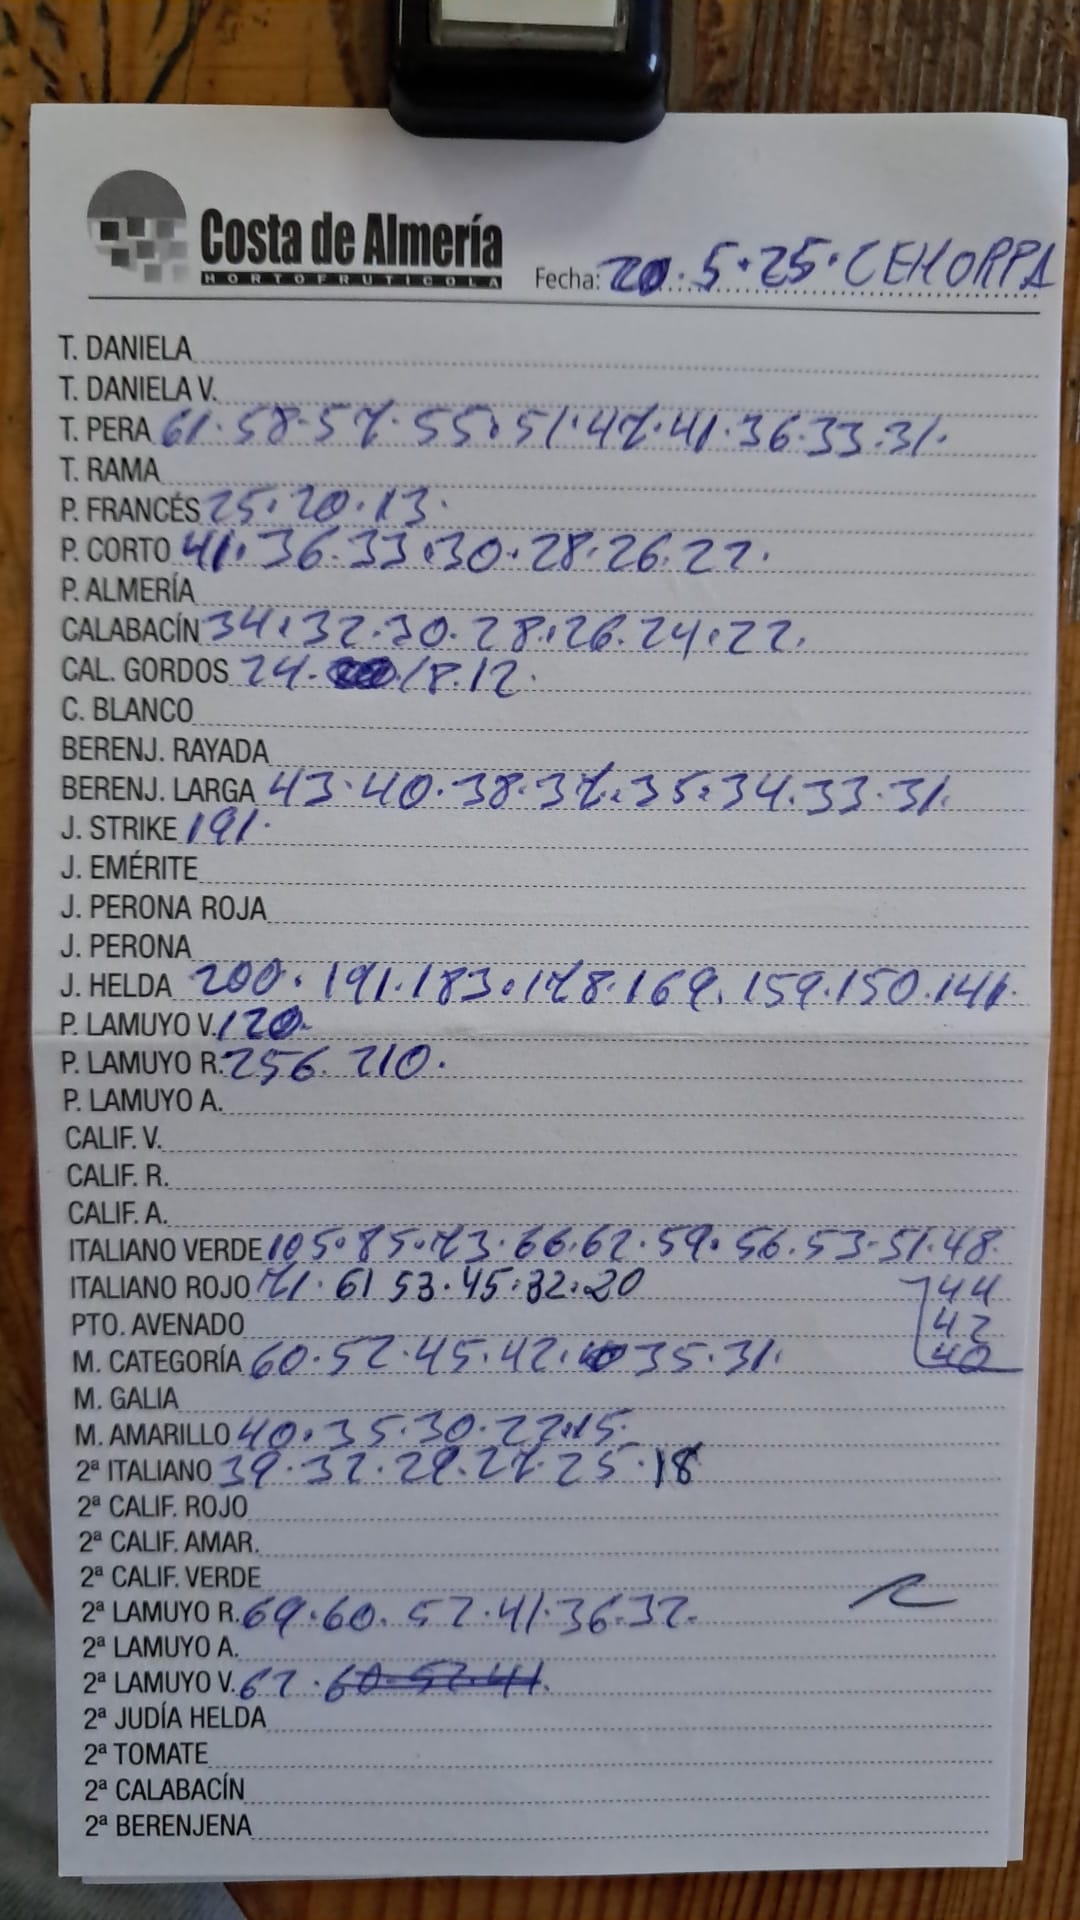 Costa de Almería
HORTOFRUTÍCOLA
Fecha: 20.5.25. CEHORPA
T. DANIELA
T. DANIELA V.
T. PERA 61.58.57.55.51.47.41.36.33.31.
T. RAMA
P. FRANCÉS 25.20.13.
P. CORTO 41.36.33.30.28.26.22.
P. ALMERÍA
CALABACÍN 34.32.30.28.26.24.22.
CAL. GORDOS 24. 18.12.
C. BLANCO
BERENJ. RAYADA
BERENJ. LARGA 43.40.38.37.35.34.33.31.
J. STRIKE 191.
J. EMÉRITE
J. PERONA ROJA
J. PERONA
J. HELDA 200.191.183.178.169.159.150.141.
P. LAMUYO V. 120.
P. LAMUYO R. 256. 210.
P. LAMUYO A.
CALIF. V.
CALIF. R.
CALIF. A.
ITALIANO VERDE 105.85.73.66.62.59.56.53.51.48.
ITALIANO ROJO 71.61 53.45.32.20 44
PTO. AVENADO 42
M. CATEGORÍA 60.52.45.42. 35.31. 40
M. GALIA
M. AMARILLO 40.35.30.22.15.
2ª ITALIANO 39.32.29.27.25.18
2ª CALIF. ROJO
2ª CALIF. AMAR.
2ª CALIF. VERDE
2ª LAMUYO R. 69.60. 52.41.36.32.
2ª LAMUYO A.
2ª LAMUYO V. 62.60.52.41.
2ª JUDÍA HELDA
2ª TOMATE
2ª CALABACÍN
2ª BERENJENA